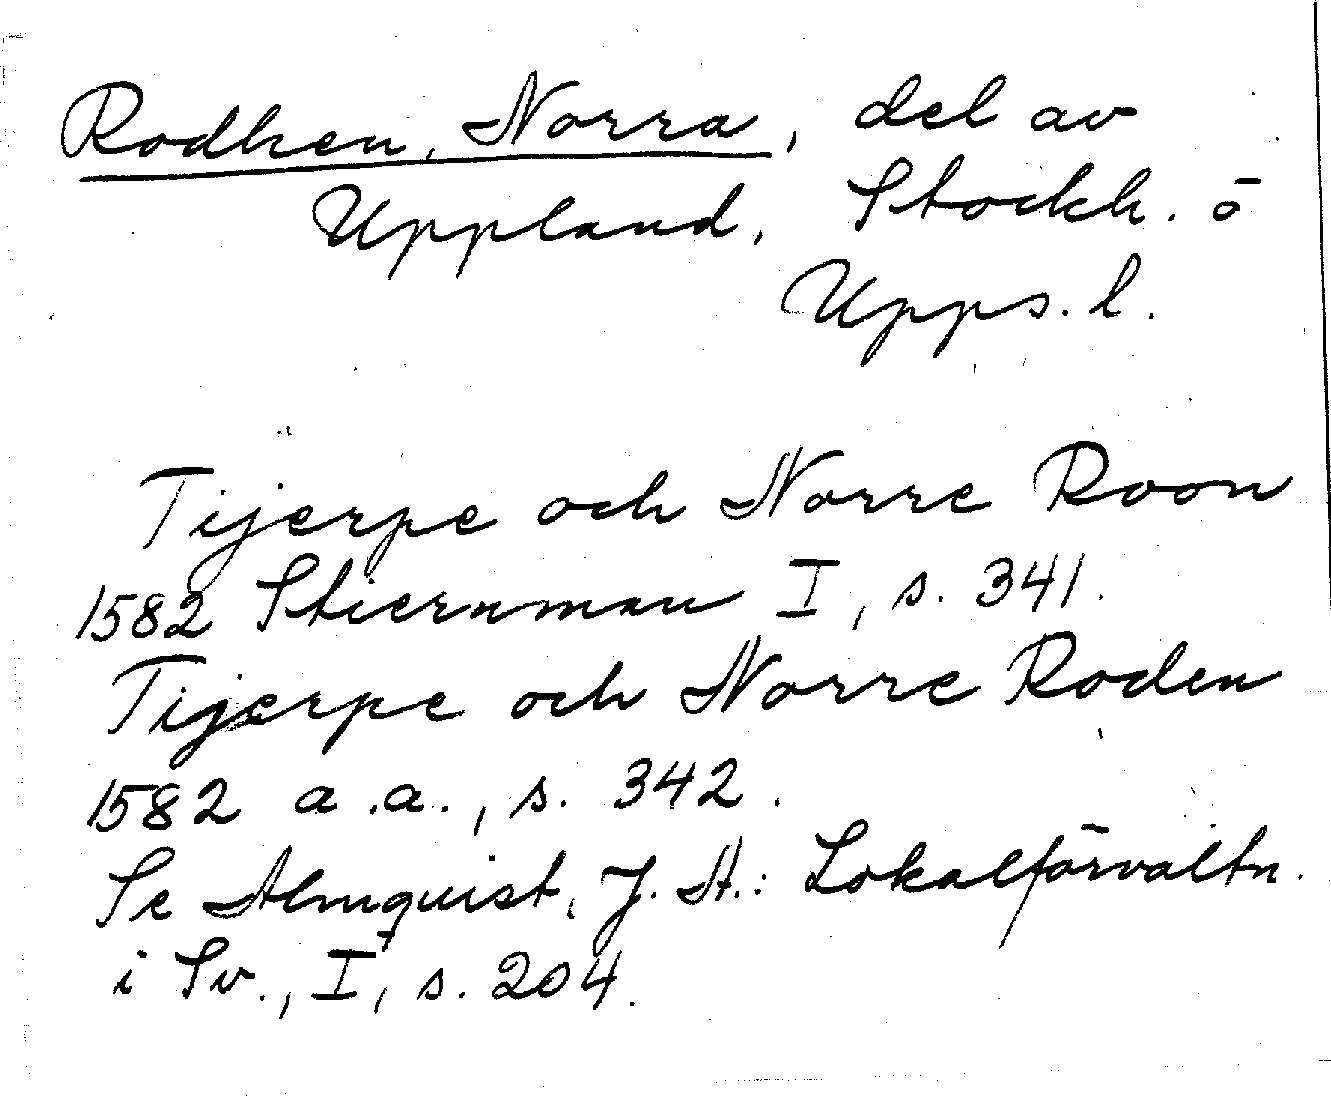 Rodhen, Norra, del av
Uppland, Stockh. o
Upps. l.
Tijerpe och Norre Roon
1582 Stiernman I, s. 341.
Tijerpe och Norre Roden
1582 a.a., s. 342.
Se Almquist, J. A.: Lokalförvaltn.
i Sv., I, s. 204.